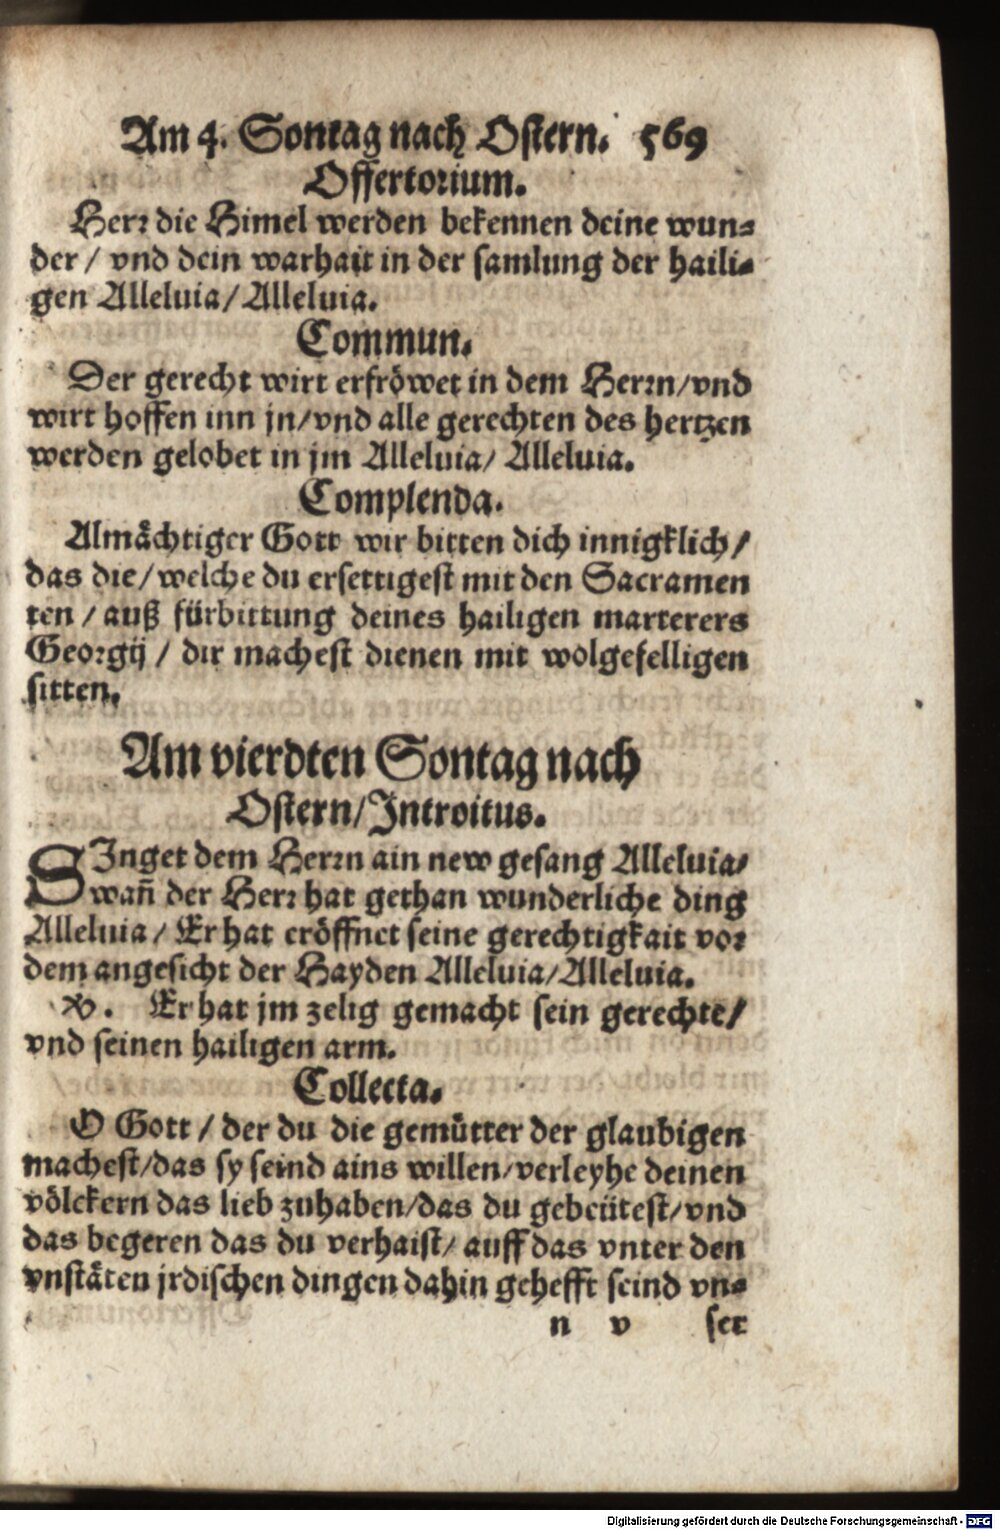 Am 4. Sontag nach Ostern. 569
Offertorium.
Herr die Himel werden bekennen deine wun⸗
der / vnd dein warhait in der samlung der haili⸗
gen Alleluia / Alleluia.
Commun.
Der gerecht wirt erfröwet in dem Herrn / vnd
wirt hoffen inn jn / vnd alle gerechten des hertzen
werden gelobet in jm Alleluia / Alleluia.
Complenda.
Almächtiger Gott wir bitten dich innigklich /
das die / welche du ersettigest mit den Sacramen
ten / auß fürbittung deines hailigen marterers
Georgij / dir machest dienen mit wolgefelligen
sitten.
Am vierdten Sontag nach
Ostern / Introitus.
SInget dem Herrn ain new gesang Alleluia /
wañ der Herr hat gethan wunderliche ding
Alleluia / Er hat eröffnet seine gerechtigkait vor
dem angesicht der Hayden Alleluia / Alleluia.
℣. Er hat jm zelig gemacht sein gerechte /
vnd seinen hailigen arm.
Collecta.
O Gott / der du die gemütter der glaubigen
machest / das sy seind ains willen / verleyhe deinen
völckern das lieb zuhaben / das du gebeütest / vnd
das begeren das du verhaist / auff das vnter den
vnstäten jrdischen dingen dahin gehefft seind vn⸗
n v ser
Digitalisierung gefördert durch die Deutsche Forschungsgemeinschaft - DFG